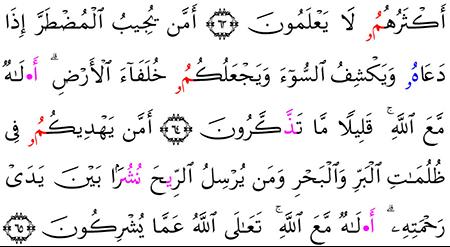 أَكۡثَرُهُمُۥ لَا يَعۡلَمُونَ ۝٦٣ أَمَّن يُجِيبُ ٱلۡمُضۡطَرَّ إِذَا
دَعَاهُۥ وَيَكۡشِفُ ٱلسُّوٓءَ وَيَجۡعَلُكُمُۥ خُلَفَآءَ ٱلۡأَرۡضِۗ أَ•لَٰهٞ
مَّعَ ٱللَّهِۚ قَلِيلٗا مَّا تَذَّكَّرُونَ ۝٦٤ أَمَّن يَهۡدِيكُمُۥ فِى
ظُلُمَٰتِ ٱلۡبَرِّ وَٱلۡبَحۡرِ وَمَن يُرۡسِلُ ٱلرِّيحَ نُشُرَۢا بَيۡنَ يَدَىۡ
رَحۡمَتِهِۦٓۗ أَ•لَٰهٞ مَّعَ ٱللَّهِۚ تَعَٰلَى ٱللَّهُ عَمَّا يُشۡرِكُونَ ۝٦٥